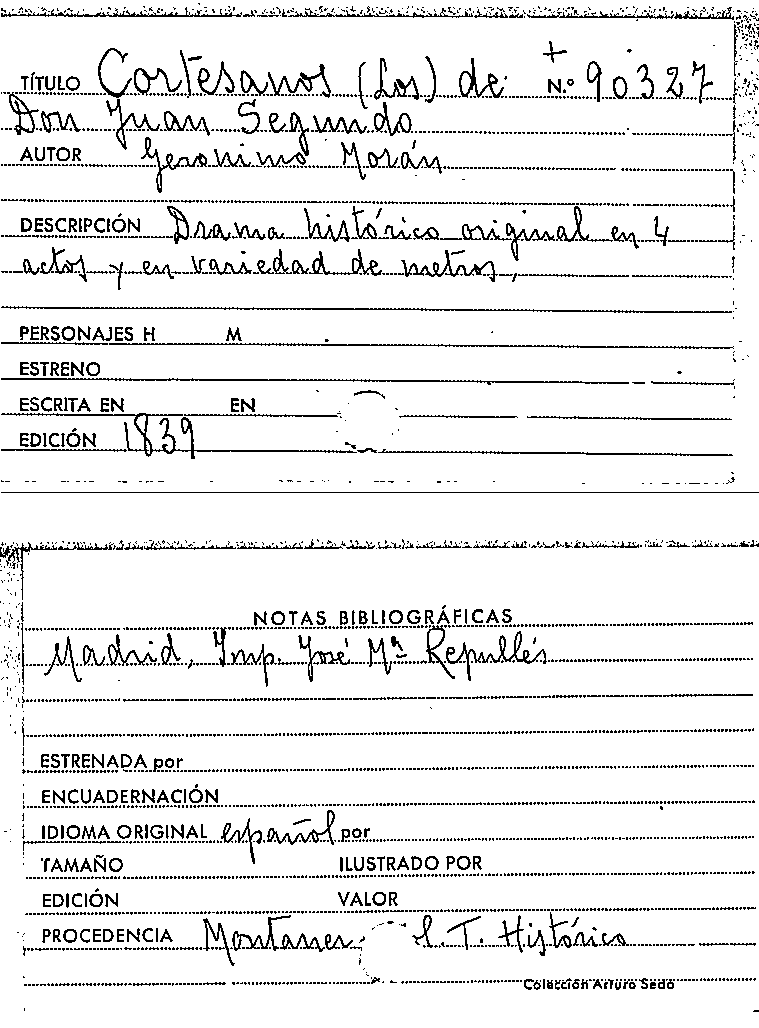 TÍTULO Cortesanos (Los) de + N.º 90327
Don Juan Segundo
AUTOR Geronimo Morán
DESCRIPCIÓN Drama histórico original en 4
actos y en variedad de metros,
PERSONAJES H M
ESTRENO
ESCRITA EN EN
EDICIÓN 1839
NOTAS BIBLIOGRÁFICAS
Madrid, Imp. José Mª Repullés
ESTRENADA por
ENCUADERNACIÓN
IDIOMA ORIGINAL español por
TAMAÑO ILUSTRADO POR
EDICIÓN VALOR
PROCEDENCIA Montaner T. Histórico
Colección Arturo Sedó